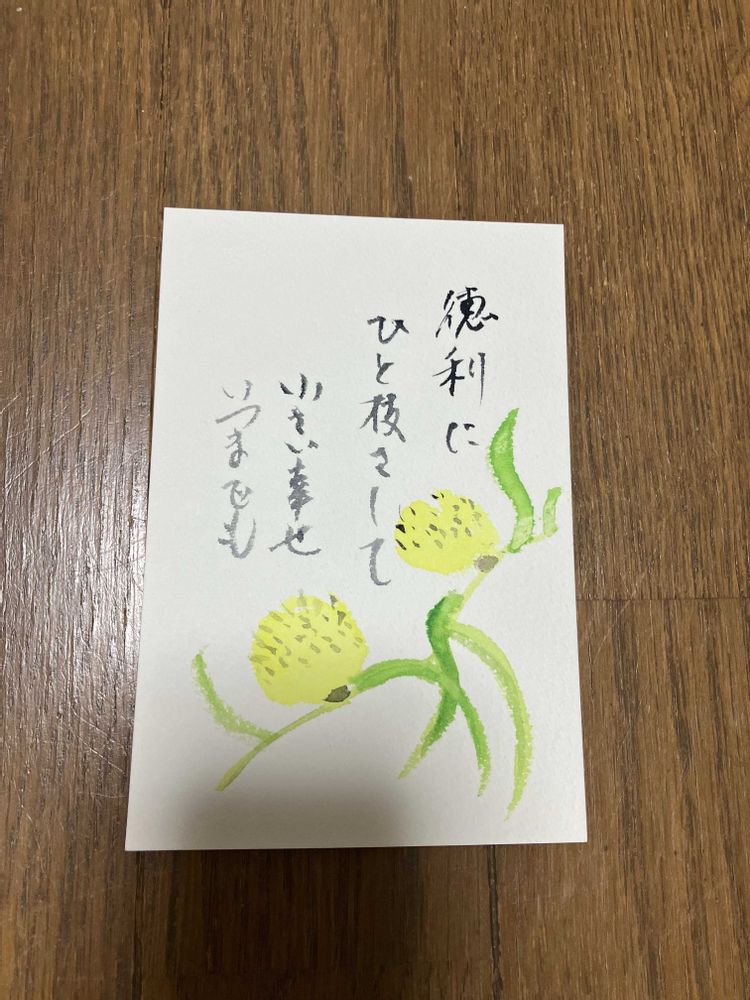 徳利に
ひと枝さして
小さい幸せ
いつまでも